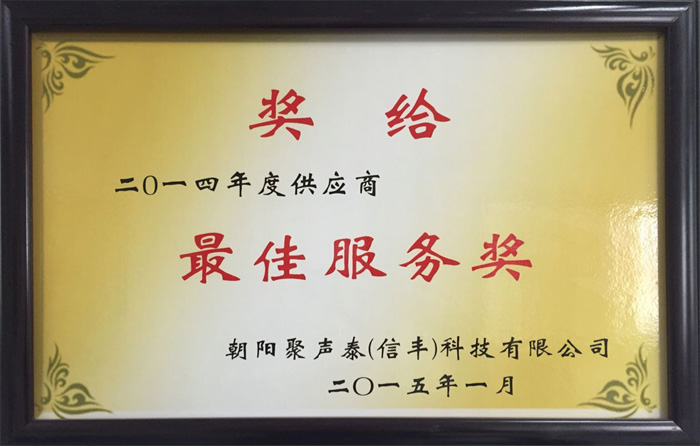 奖 给
二〇一四年度供应商
最佳服务奖
朝阳聚声泰(信丰)科技有限公司
二〇一五年一月